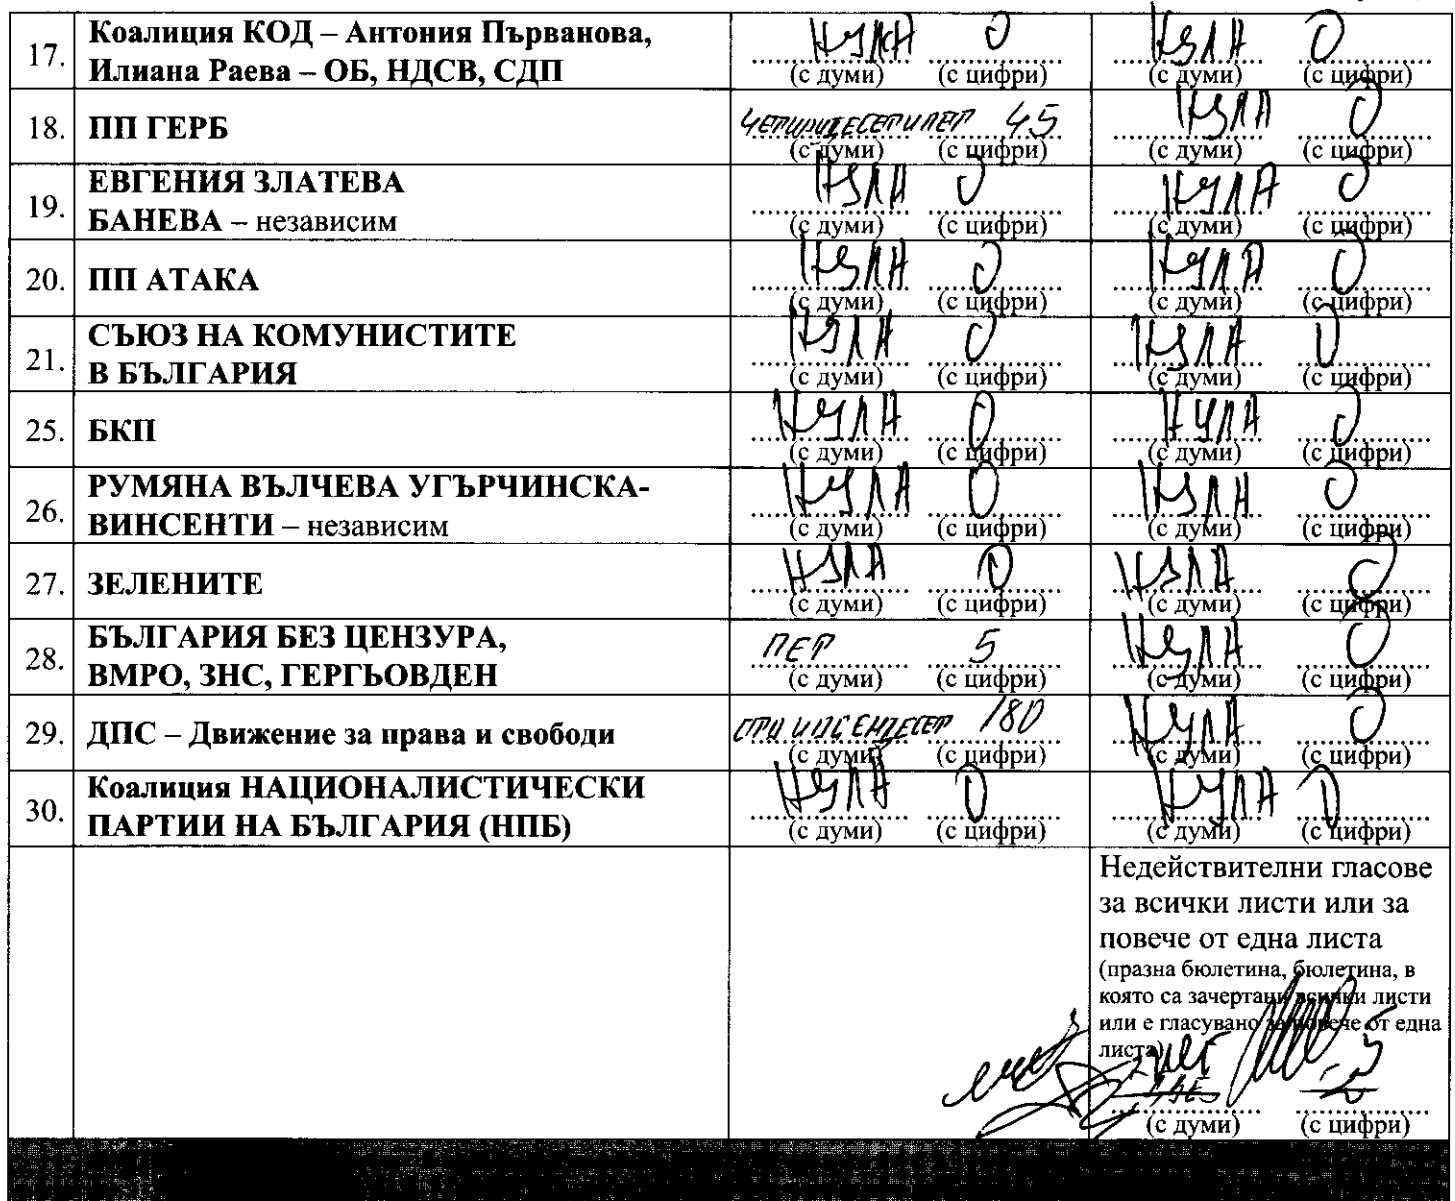 17. Коалиция КОД – Антония Първанова, Илиана Раева – ОБ, НДСВ, СДП НУЛА 0 НУЛА 0
(с думи) (с цифри) (с думи) (с цифри)
18. ПП ГЕРБ ЧЕТИРИДЕСЕТ И ПЕТ 45 НУЛА 0
(с думи) (с цифри) (с думи) (с цифри)
19. ЕВГЕНИЯ ЗЛАТЕВА БАНЕВА – независим НУЛА 0 НУЛА 0
(с думи) (с цифри) (с думи) (с цифри)
20. ПП АТАКА НУЛА 0 НУЛА 0
(с думи) (с цифри) (с думи) (с цифри)
21. СЪЮЗ НА КОМУНИСТИТЕ В БЪЛГАРИЯ НУЛА 0 НУЛА 0
(с думи) (с цифри) (с думи) (с цифри)
25. БКП НУЛА 0 НУЛА 0
(с думи) (с цифри) (с думи) (с цифри)
26. РУМЯНА ВЪЛЧЕВА УГЪРЧИНСКА-ВИНСЕНТИ – независим НУЛА 0 НУЛА 0
(с думи) (с цифри) (с думи) (с цифри)
27. ЗЕЛЕНИТЕ НУЛА 0 НУЛА 0
(с думи) (с цифри) (с думи) (с цифри)
28. БЪЛГАРИЯ БЕЗ ЦЕНЗУРА, ВМРО, ЗНС, ГЕРГЬОВДЕН ПЕТ 5 НУЛА 0
(с думи) (с цифри) (с думи) (с цифри)
29. ДПС – Движение за права и свободи СТО И ОСЕМДЕСЕТ 180 НУЛА 0
(с думи) (с цифри) (с думи) (с цифри)
30. Коалиция НАЦИОНАЛИСТИЧЕСКИ ПАРТИИ НА БЪЛГАРИЯ (НПБ) НУЛА 0 НУЛА 0
(с думи) (с цифри) (с думи) (с цифри)
Недействителни гласове
за всички листи или за
повече от една листа
(празна бюлетина, бюлетина, в
която са зачертани всички листи
или е гласувано за повече от една
листа)
пет 5
(с думи) (с цифри)